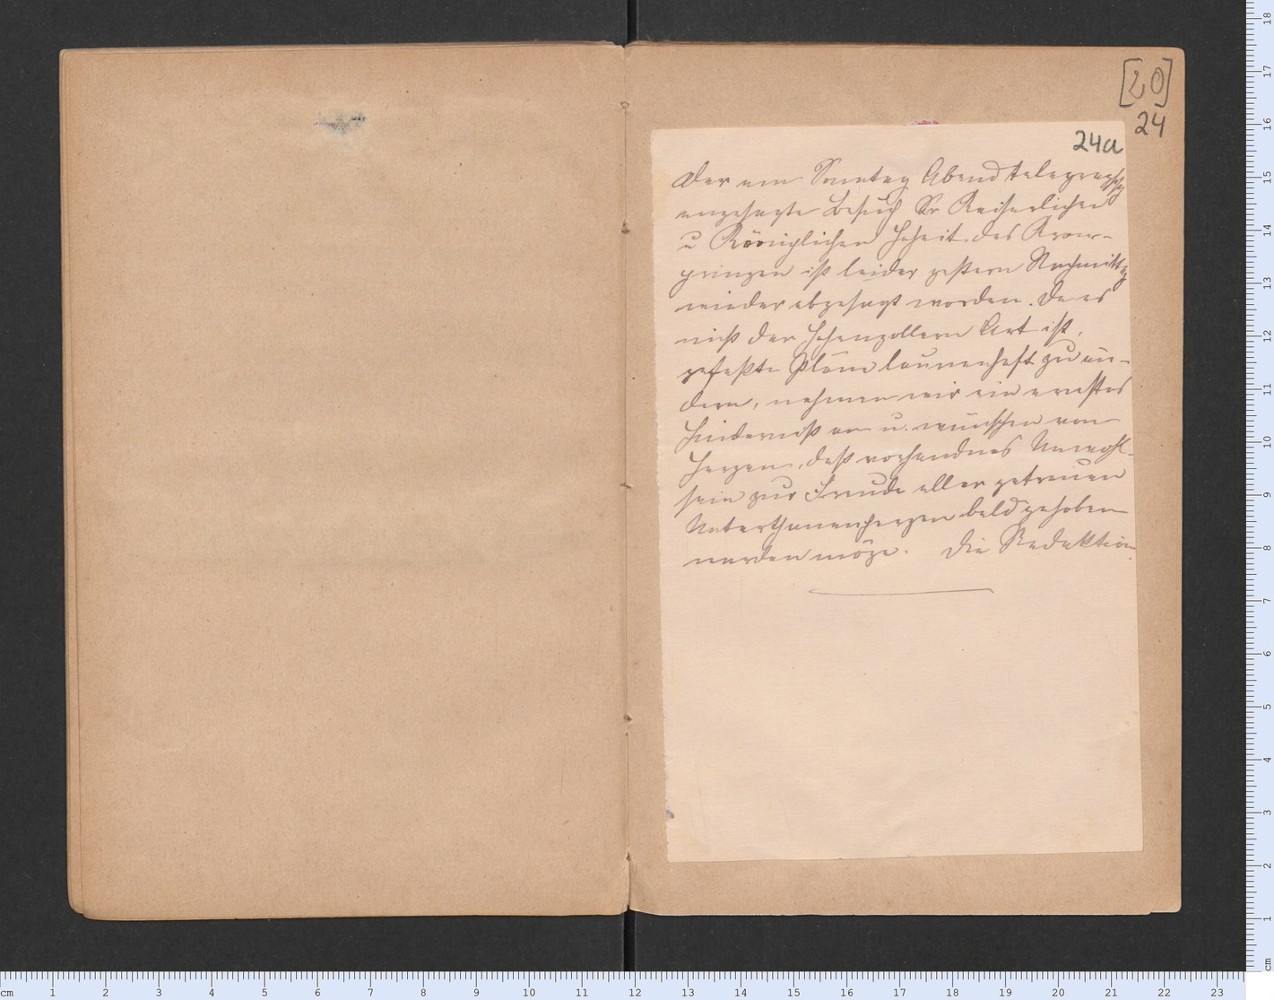 [20]
24
24a
Der am Sonntag Abend telegraphisch
angesagte Besuch Sr Kaiserlichen
u Königlichen Hoheit des Kron-
prinzen ist leider gestern Nachmittag
wieder abgesagt worden. Da es
nicht der Hohenzollern Art ist,
gefaßte Pläne launenhaft zu än-
dern, nehmen wir ein ernstes
Hinderniß an u. wünschen von
Herzen, daß vorhandnes Unwohl-
sein zur Freude aller getreuen
Unterthanenherzen bald gehoben
werden möge. Die Redaktion.